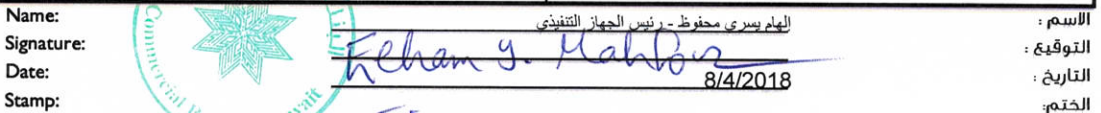 Name: الهام يسري محفوظ - رئيس الجهاز التنفيذي الاسم :
Signature: Elham y. Mahfouz التوقيع :
Date: 8/4/2018 التاريخ :
Stamp: Commercial الختم: